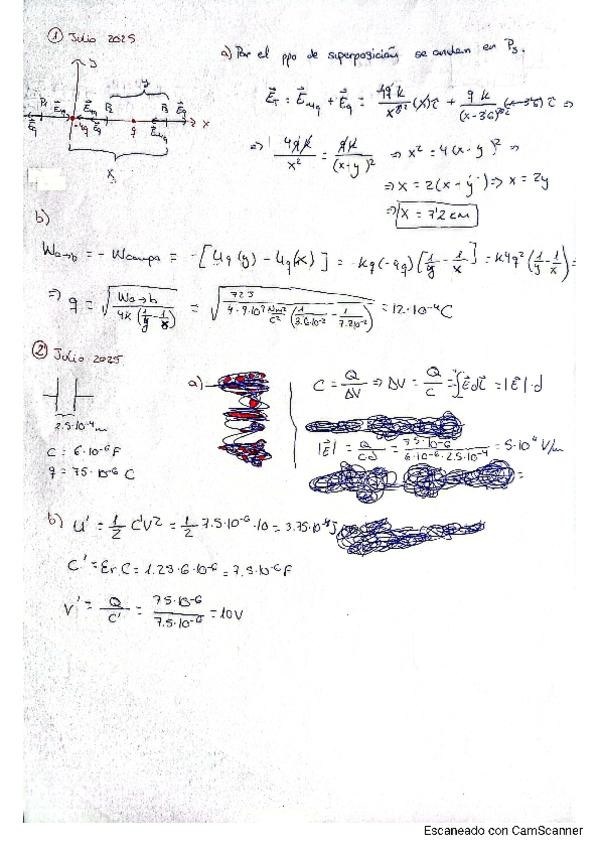 ① Julio 2025
a) Por el ppo de superposición se anulan en P₃.
E⃗_T = E⃗_{4q} + E⃗_q = 4qk/x² (x) i⃗ + qk/(x-3.6)² i⃗ ⇒
⇒ 4qk/x² = qk/(x-y)² ⇒ x² = 4(x-y)² ⇒
⇒ x = 2(x-y) ⇒ x = 2y
⇒ x = 7'2 cm
b)
W_{a→b} = - Wcampo = -[U_q(y) - U_q(x)] = -kq(-4q)[1/y - 1/x] = k4q²(1/y - 1/x) =
⇒ q = √(W_{a→b} / 4k(1/y - 1/x)) =
② Julio 2025
2.5·10⁻⁴ m
C = 6·10⁻⁶ F
q = 75·10⁻⁶ C
a)
C = Q/ΔV ⇒ ΔV = Q/C = ∫E⃗dl⃗ = |E⃗|·d
|E⃗| = Q/Cd = 75·10⁻⁶ / 6·10⁻⁶·2.5·10⁻⁴ = 5·10⁴ V/m
b) U' = 1/2 C'V² = 1/2 7.5·10⁻⁶·10 = 3.75·10⁻⁴ J
C' = εr C = 1.25·6·10⁻⁶ = 7.5·10⁻⁶ F
V' = Q/C' = 75·10⁻⁶ / 7.5·10⁻⁶ = 10V
Escaneado con CamScanner